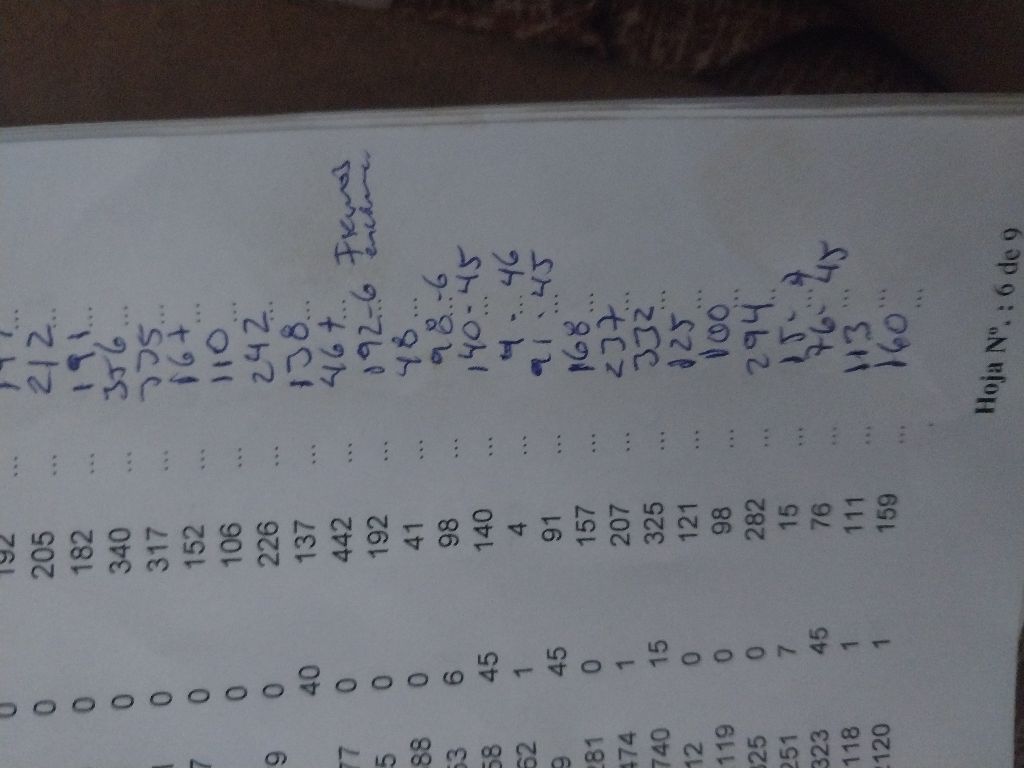 0 192 ...
0 205 ... 212 ...
0 182 ... 191 ...
0 340 ... 356 ...
0 317 ... 335 ...
7 0 152 ... 167 ...
0 106 ... 110 ...
9 0 226 ... 242 ...
40 137 ... 138 ...
77 0 442 ... 467 ...
5 0 192 ... 192-6
88 0 41 ... 48 ...
53 6 98 ... 98-6
58 45 140 ... 140-45
62 1 4 ... 4-46
9 45 91 ... 91-45
281 0 157 ... 168 ...
474 1 207 ... 237 ...
740 15 325 ... 332 ...
12 0 121 ... 125 ...
119 0 98 ... 100 ...
325 0 282 ... 294 ...
251 7 15 ... 15-
323 45 76 ... 76-45
118 1 111 ... 113 ...
120 1 159 ... 160 ...
Hoja Nº. : 6 de 9